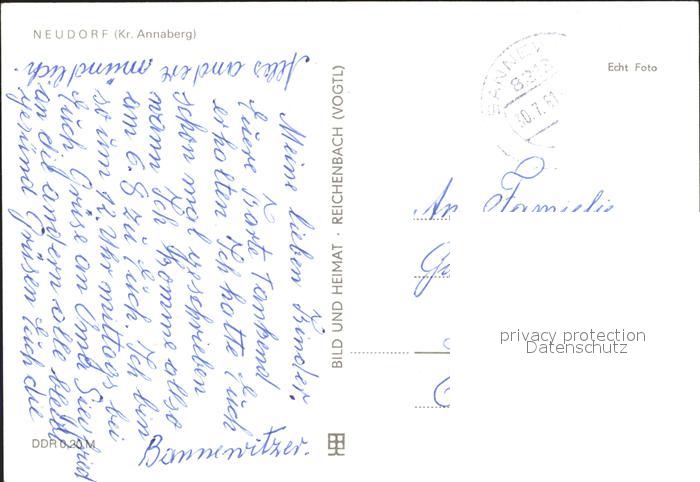 NEUDORF (Kr. Annaberg)
Meine lieben Kinder.
Euere Karte Tankend
erhalten. Ich hatte Euch
schon mal geschrieben
wann ich komme also
am 6.8 zu Euch. Ich bin
so um 12 Uhr mittags bei
Euch Grüse an Oma Siegfried
an die andern alle
gesund Grüsen Euch die
Bannewitzer.
Alles andere mündlich.
DDR 0,20 M
BILD UND HEIMAT · REICHENBACH (VOGTL)
Echt Foto
BANNE
30.7.81
An Familie
privacy protection
Datenschutz